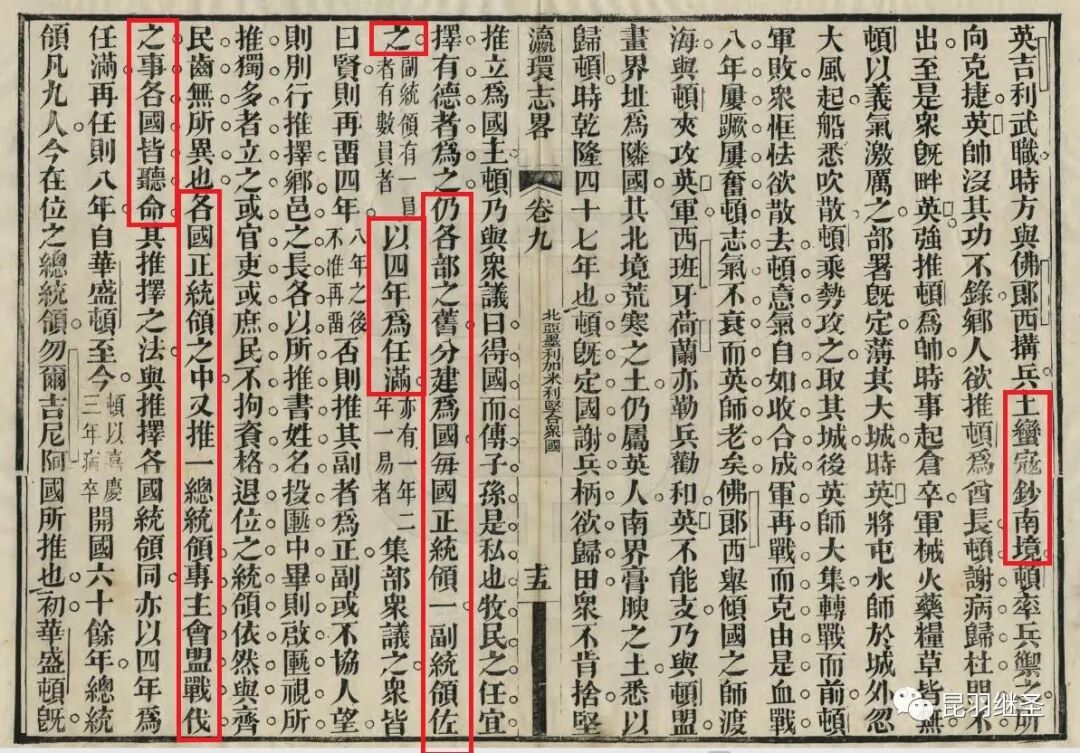 英吉利武職時方與佛郎西搆兵土蠻寇鈔南境頓率兵禦之所
向克捷英帥沒其功不錄鄉人欲推頓爲酋長頓謝病歸杜門不
出至是衆旣畔英強推頓爲帥時事起倉卒軍械火藥糧草皆無
頓以義氣激厲之部署旣定薄其大城時英將屯水師於城外忽
大風起船悉吹散頓乘勢攻之取其城後英師大集轉戰而前頓
軍敗衆恇怯欲散去頓意氣自如收合成軍再戰而克由是血戰
八年屢蹶屢奮頓志氣不衰而英師老矣佛郎西舉傾國之師渡
海與頓夾攻英軍西班牙荷蘭亦勒兵勸和英不能支乃與頓盟
畫界址爲隣國其北境荒寒之土仍屬英人南界膏腴之土悉以
歸頓時乾隆四十七年也頓旣定國謝兵柄欲歸田衆不肯捨堅
瀛環志畧 卷九 北亞墨利加米利堅合衆國 十五
推立爲國主頓乃與衆議曰得國而傳子孫是私也牧民之任宜
擇有德者爲之仍各部之舊分建爲國每國正統領一副統領佐
之副統領有一員者有數員者以四年爲任滿亦有一年二年一易者集部衆議之衆皆
曰賢則再畱四年八年之後不准再畱否則推其副者爲正副或不協人望
則別行推擇鄉邑之長各以所推書姓名投匭中畢則啟匭視所
推獨多者立之或官吏或庶民不拘資格退位之統領依然與齊
民齒無所異也各國正統領之中又推一總統領專主會盟戰伐
之事各國皆聽命其推擇之法與推擇各國統領同亦以四年爲
任滿再任則八年自華盛頓至今頓以嘉慶三年病卒開國六十餘年總統
領凡九人今在位之總統領勿爾吉尼阿國所推也初華盛頓旣
昆羽继圣